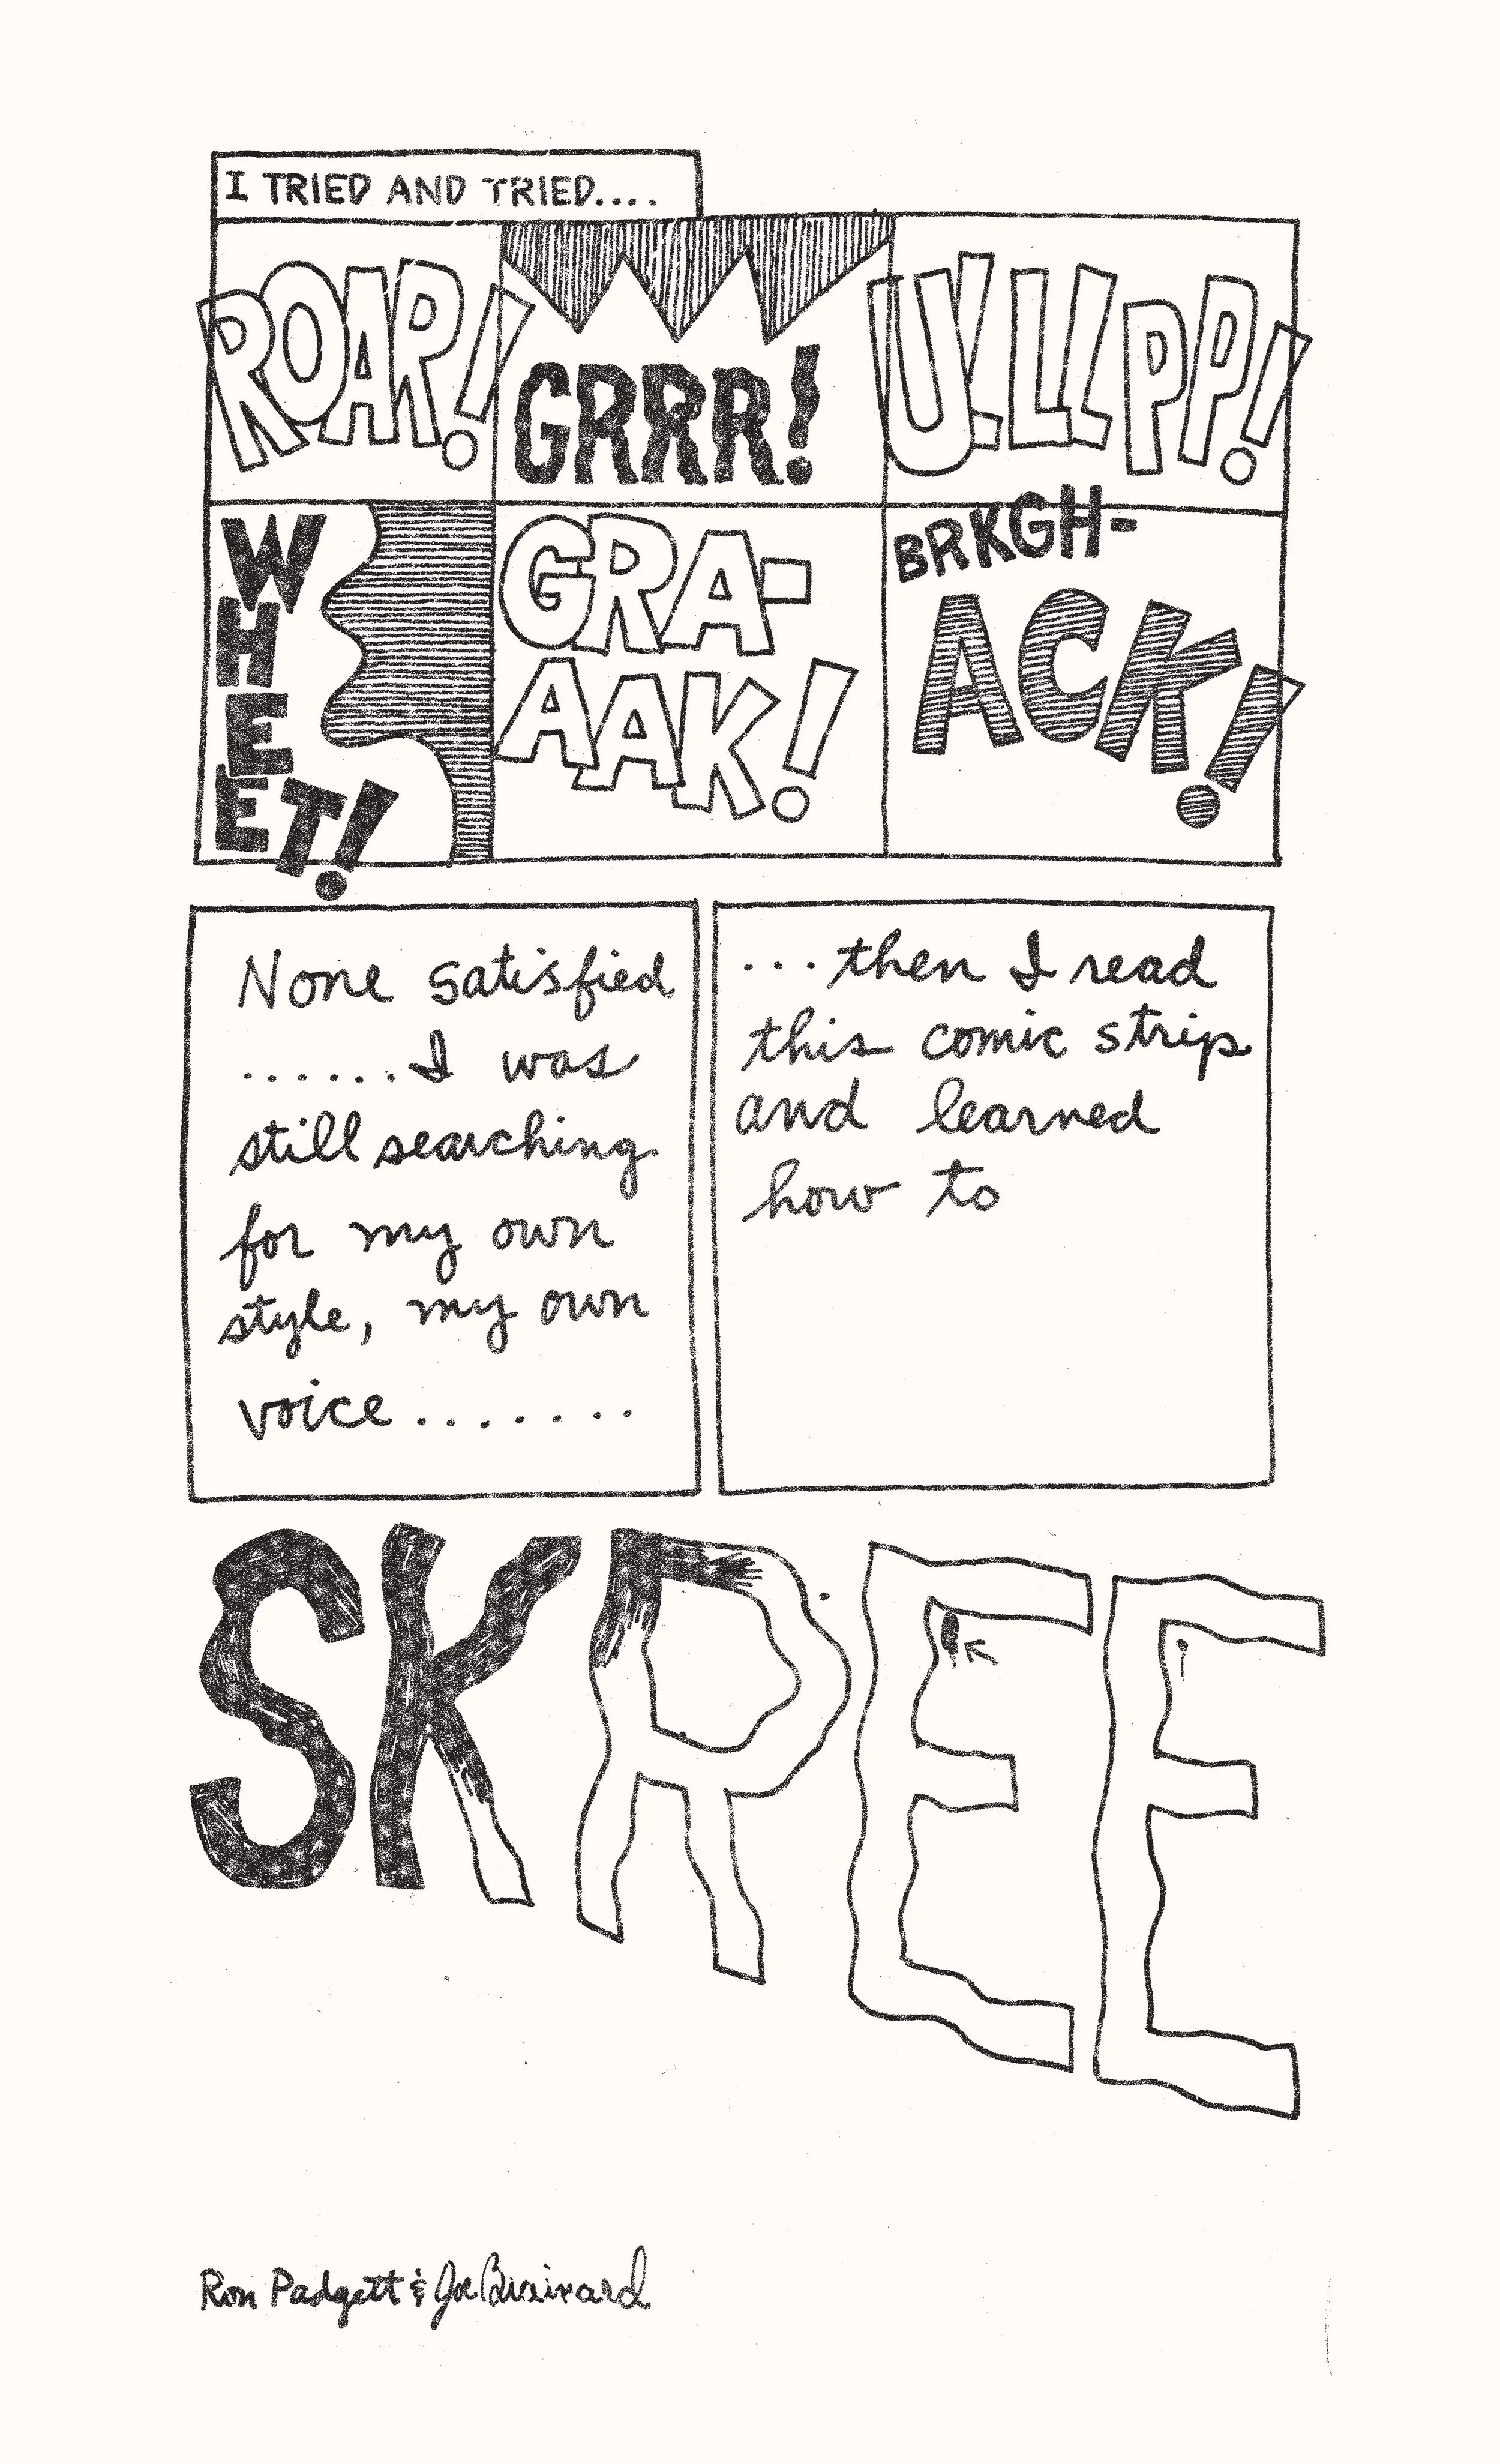 I TRIED AND TRIED....
ROAR!
GRRR!
ULLLPP!
WHEET!
GRA-
AAAK!
BRKGH-
ACK!
None satisfied
......I was
still searching
for my own
style, my own
voice.......
...then I read
this comic strip
and learned
how to
SKREE
Ron Padgett & Joe Brainard